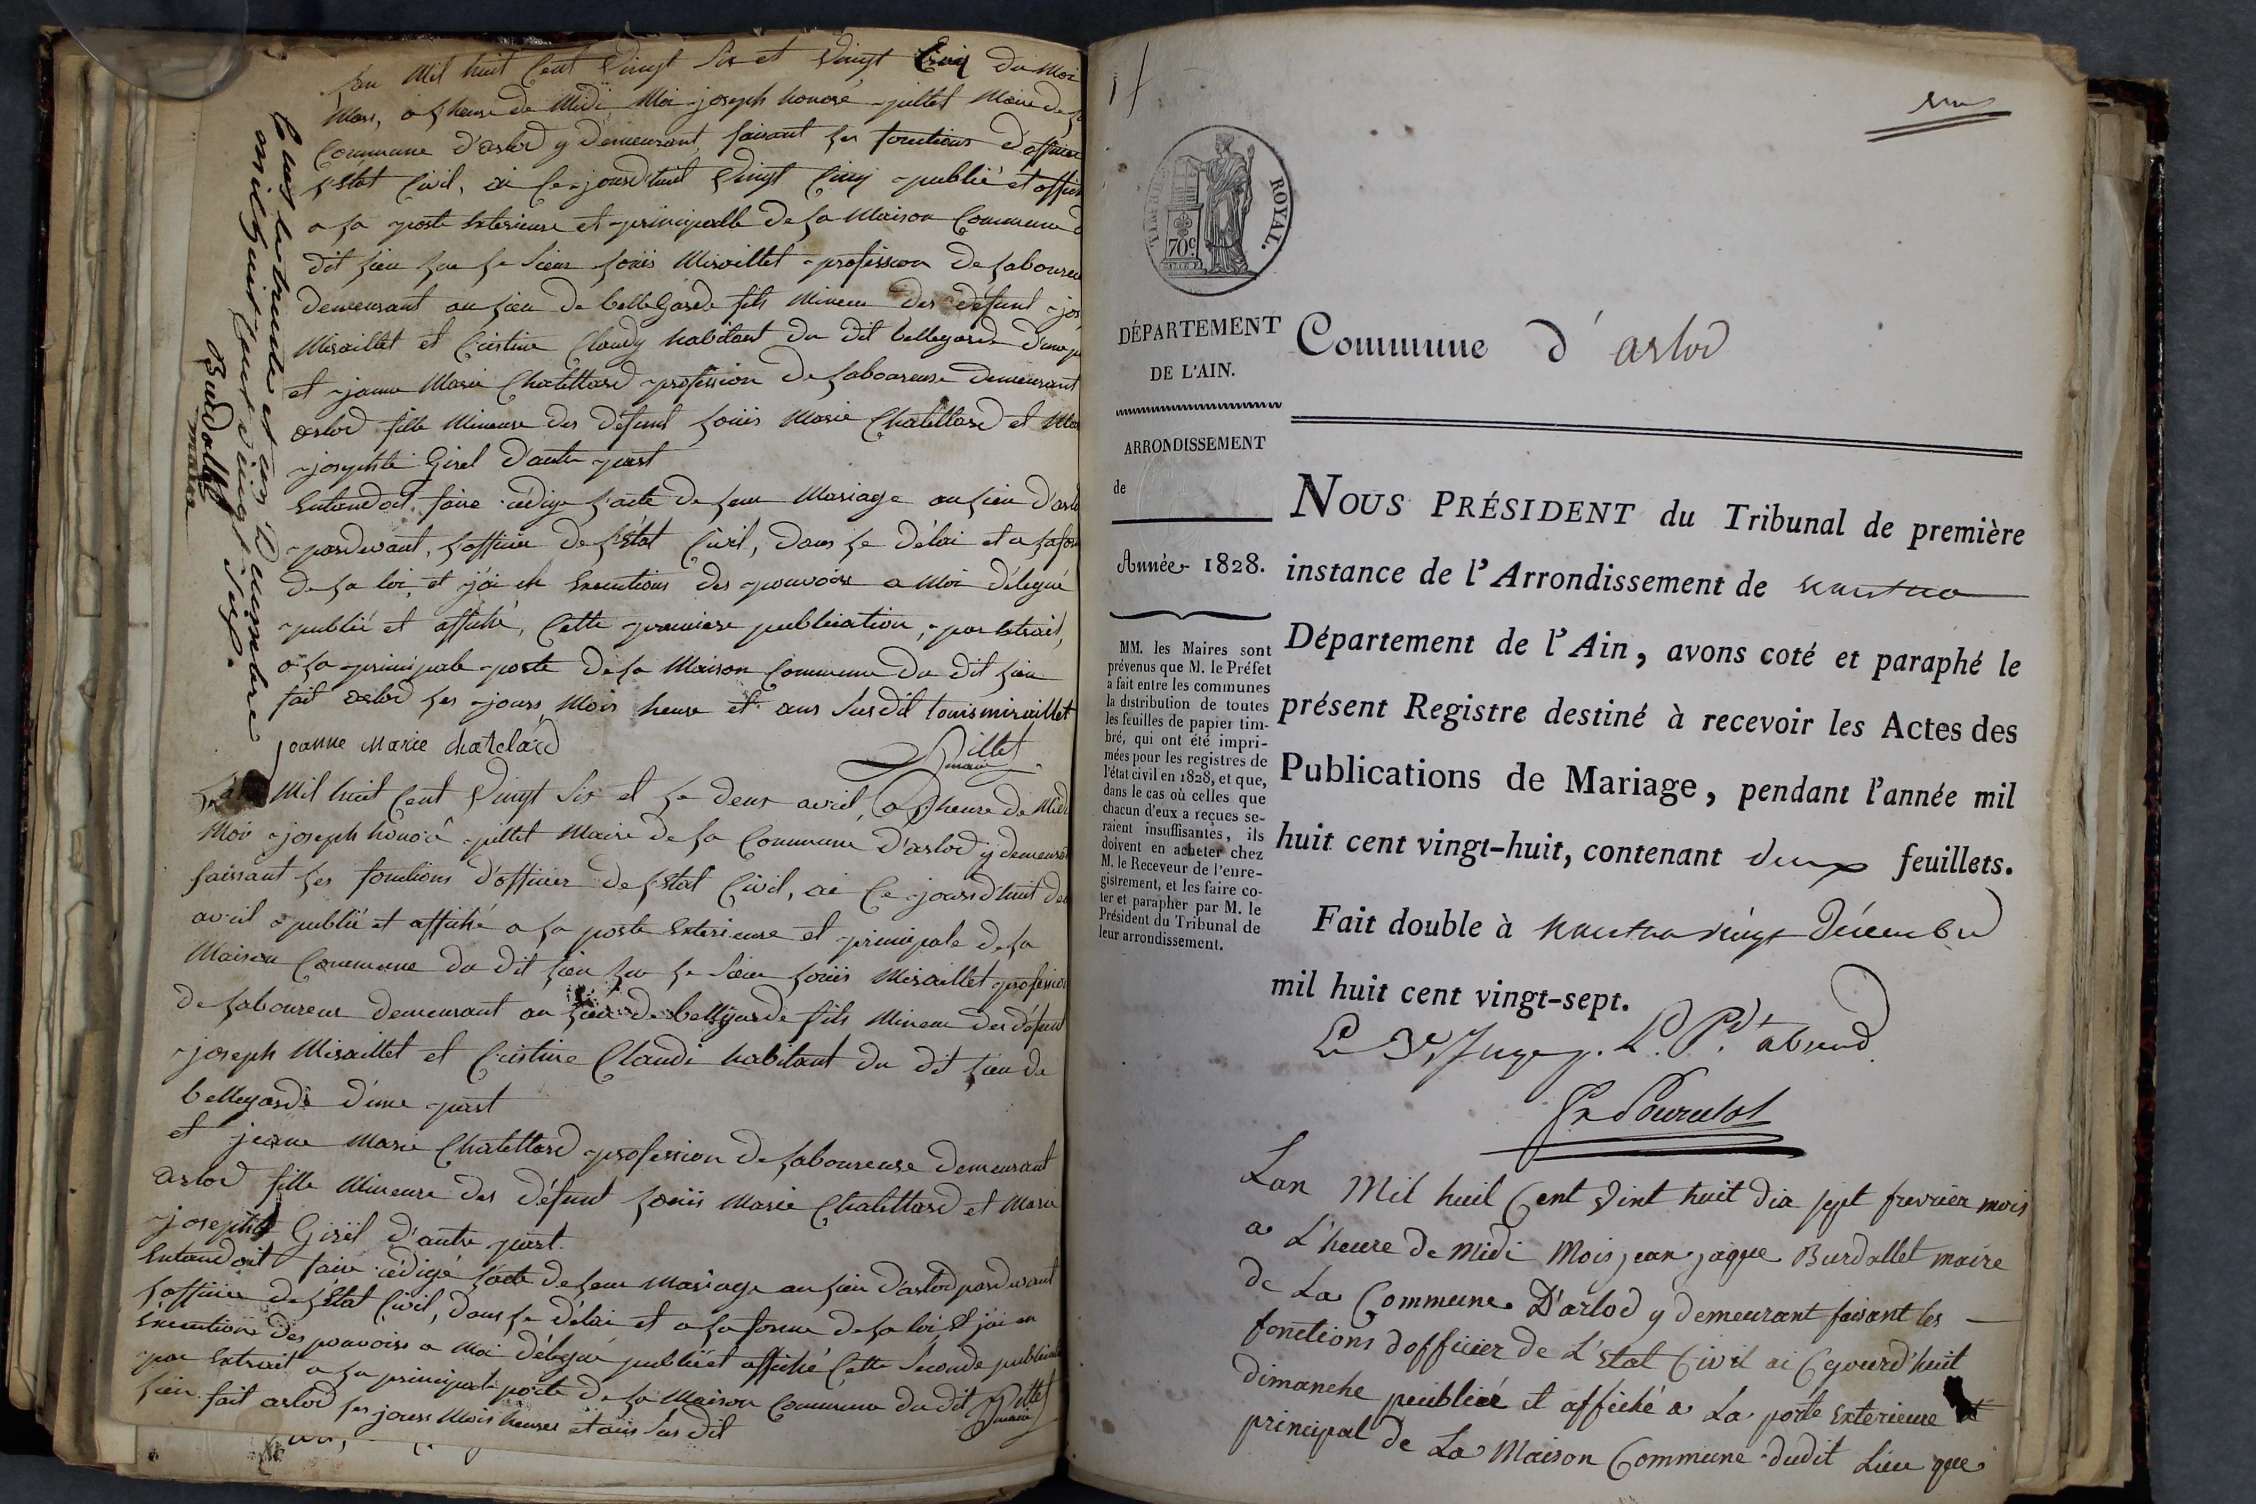 Lan Mil huit Cent Vingt Six et Vingt Cinq du Moi
Mars, a lheure de Midi Moi joseph honoré pillet Maire de la
Commune d'arlod y demeurant, faisant les fonctions d'officier
L'Etat Civil, ai Ce jourd'huit Vingt Cinq publié et affich
a la porte Exterieure et principalle de la Maison Commune d
dit lieu que le Sieur louis Miraillet profession de laboureur
demeurant au lieu de belleGarde fils Mineur des défunt jos
Miraillet et Cristine Claudy habitant du dit bellegarde d'une p
et jeanne Marie Chatellard profession de laboureuse demeurant
arlod fille Mineure des défunt louis Marie Chatellard et Mar
josephte Girel d'autre part
Entendoit faire rédige l'acte de leur Mariage au lieu d'arlo
pardevant, l'officier de l'Etat Civil, dans le délai et a la for
de la loi, et j'ai en Executions des pouvoirs a Moi délégué
publié et affiché, Cette premiere publication, par Extrait,
a la principale porte de la Maison Commune du dit lieu
fait arlod les jours Mois heure et ans Susdit louis miraillet
joanne Marie chatelard
Pillet
maire
Clos le trente et un Decembre
mil huit Cent vingt sept.
Burdallet
maire
Lan Mil huit Cent Vingt Six et le deux avril, a lheure de Midi
Moi joseph honoré pillet Maire de la Commune d'arlod y demeurant
faissant les fonctions d'officier de l'Etat Civil, ai Ce jourd'huit deu
avril publié et affiché a la porte Exterieure et principale de la
Maison Commune du dit lieu que le Sieur louis Miraillet profession
de laboureur demeurant au lieu de bellegarde fils Mineur des défunt
joseph Miraillet et Cristine Claudi habitant du dit lieu de
bellegarde d'une part
et jeanne Marie Chatellard profession de laboureuse demeurant
arlod fille Mineure des défunt louis Marie Chatellard et Marie
josephte Girel d'autre part.
Entendoit faire rédigé l'acte de leur Mariage au lieu d'arlod pardevant
l'officier de l'Etat Civil, dans le délai et a la forme de la loi, Et j'ai en
Executions des pouvoirs a Moi délégué publié et affiché Cette Seconde publicati
par Extrait a la principale porte de la Maison Commune du dit
lieu fait arlod les jours Mois heures et ans Sus dit
Pillet
maire
TIMBRE ROYAL.
70c
DÉPARTEMENT
DE L'AIN.
ARRONDISSEMENT
de
Année 1828.
MM. les Maires sont
prévenus que M. le Préfet
a fait entre les communes
la distribution de toutes
les feuilles de papier tim-
bré, qui ont été impri-
mées pour les registres de
l'état civil en 1828, et que,
dans le cas où celles que
chacun d'eux a reçues se-
raient insuffisantes, ils
doivent en acheter chez
M. le Receveur de l'enre-
gistrement, et les faire co-
ter et parapher par M. le
Président du Tribunal de
leur arrondissement.
Commune d'arlod
NOUS PRÉSIDENT du Tribunal de première
instance de l'Arrondissement de nantua
Département de l'Ain, avons coté et paraphé le
présent Registre destiné à recevoir les Actes des
Publications de Mariage, pendant l'année mil
huit cent vingt-huit, contenant deux feuillets.
Fait double à nantua vingt décembre
mil huit cent vingt-sept.
Le 3e juge p. L. Pdt absend
Lan Mil huil Cent Vint huit dia sept frevrier mois
a L'heure de Midi Mois jean jaque Burdallet maire
de La Commune D'arlod y demeurant faisant les
fonctions dofficier de L'Etat Civil ai Cejourd'huit
dimanche peublieé et affiché a La porte Exterieure et
principal de La Maison Commune dudit Lieu que